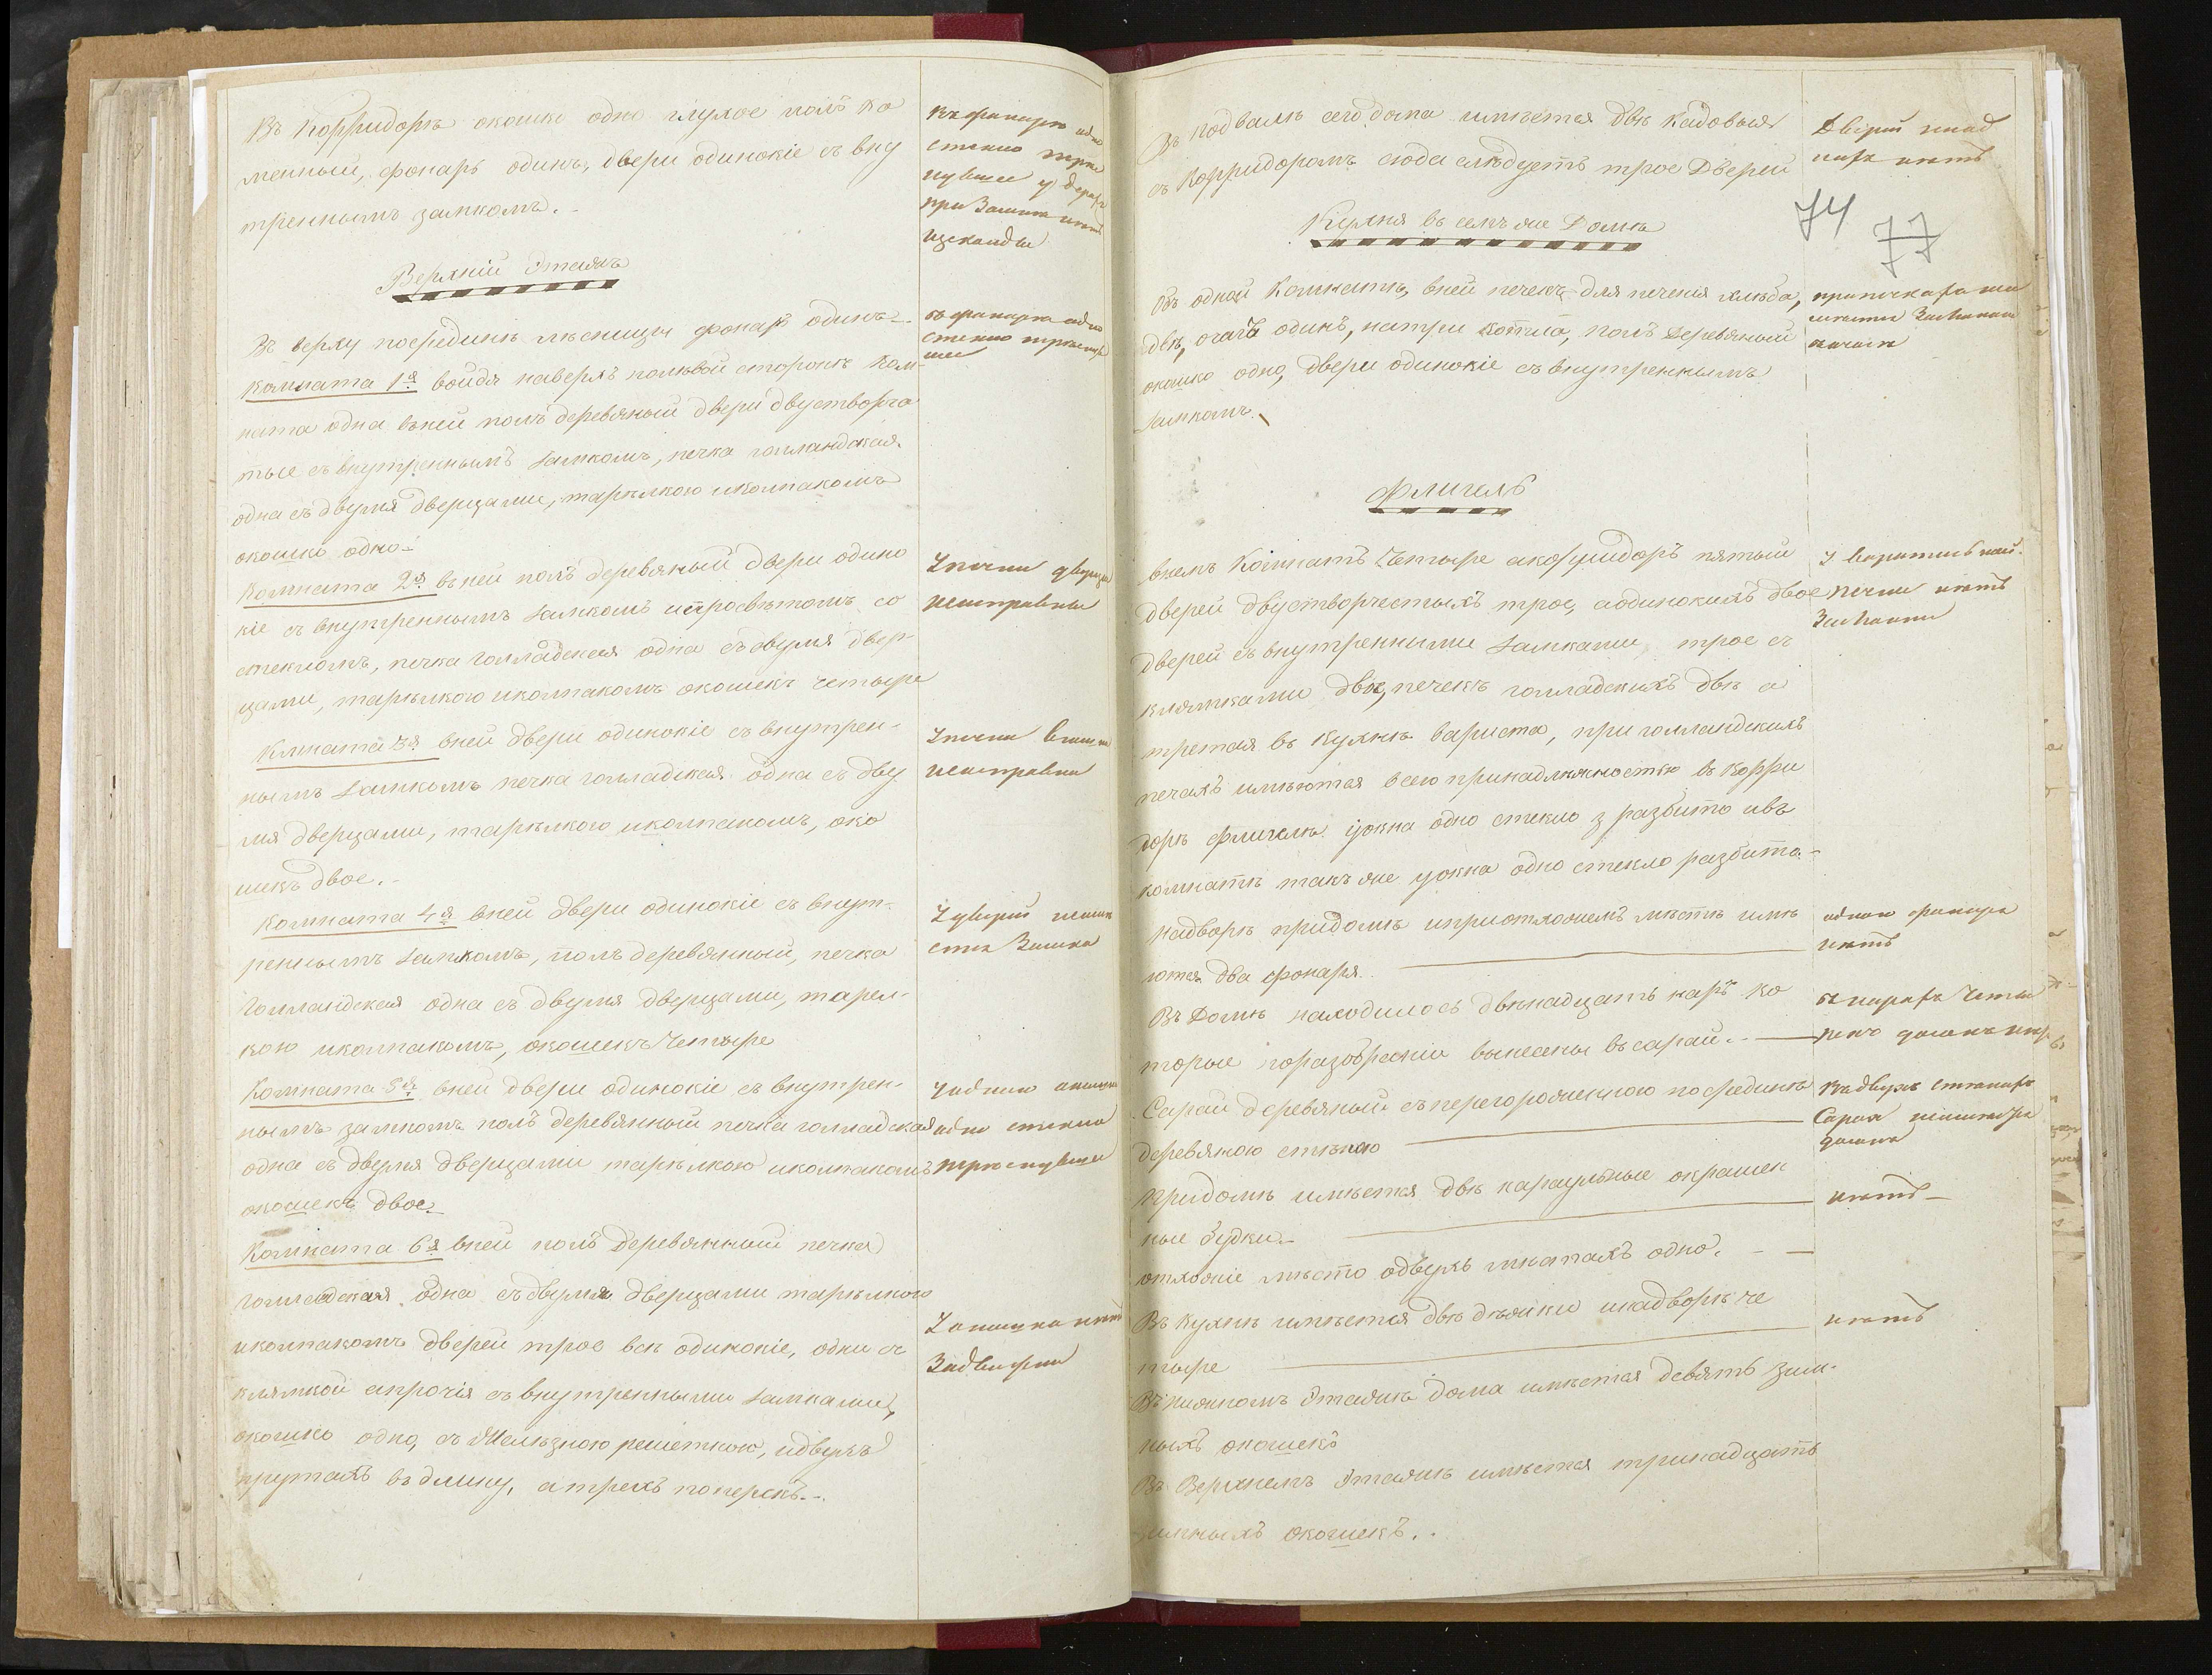 Въ Корридорѣ окошко одно глухое полъ ка
менный, фонарь одинъ, двери одинокіе съ вну
треннымъ замкомъ.-
Въ фонарѣ одно
стекло трес
нувшее у двер
при Замкѣ нетъ
щеколды
Верхній Этажъ
Въ верху посрединѣ лѣсницы фонарь одинъ-
Въ фонарѣ одно
стекло треснув
шее
Комната 1я войдя наверхъ полѣвой сторонѣ Ком-
ната одна вней полъ деревяный двери двустворча
тые съ внутреннымъ замкомъ, печка голландская
одна съ двумя дверцами, тарѣлкою иколпакомъ
окошко одно-
Комната 2я вней полъ деревяный двери одино
кіе съ внутреннымъ замкомъ ипросвѣтомъ со
стекломъ, печка голладская одна съ двумя двер
цами, тарѣлкою иколпакомъ окошекъ четыре
У печки дверцы
неисправны
Кмната 3я вней двери одинокіе съ внутрен-
нымъ замкомъ печка голладская одна съ дву
мя дверцами, тарѣлкою иколпакомъ, око
шекъ двое.-
У печки
неисправна
Комната 4я вней двери одинокіе съ внут-
реннымъ замкомъ, полъ деревянный, печка
голландская одна съ двумя дверцами, тарел-
кою иколпакомъ, окошекъ Четыре
У дверей неимѣ
етса Замка
Комната 5я вней двери одинокіе съ внутрен-
нымъ замкомъ полъ деревянный печка голладская
одна съ двумя дверцами тарѣлкою иколпакомъ
окошекъ двое-
У одного окошка
одно стекло
треснувшее
Комната 6я вней полъ деревянный печка
голладская одна съ двумя дверцами тарѣлкою
иколпакомъ дверей трое всѣ одинокіе, одни съ
клямкой апрочія съ внутренными замками,
окошко одно, съ Желѣзною решеткою, идвухъ
прутахъ въ длину, а трехъ поперекъ.-
У окошка нетъ
Задвижки
Въ подвалѣ сего дома имѣется двѣ Кадовыя
съ Корридоромъ сюда слѣдуетъ трое Дверей
Дверей
нетъ
74
77
Кухня въ семъ же Домѣ
Въ одной Комнатѣ, вней печекъ для печенія хлѣба,
двѣ, очагъ одинъ, натри котла, полъ Деревяный
окошко одно, двери одинокіе съ внутреннымъ
Замкомъ.
Флигель
внемъ Комнатъ Четыре акорридоръ пятый
дверей двустворчестыхъ трое, аодинокихъ двое
дверей съ внутренными замками, трое съ
клямками двое, печекъ голладскихъ двѣ а
третая въ Кухнѣ вариста, при голландскихъ
печахъ имѣются всею принадлѣжностью въ Корри
дорѣ флигеля уокна одно стекло з разбито ивъ
комнатѣ такъ же уокна одно стекло разбито.-
печки нетъ
Надворѣ придомѣ иприотхожемъ мѣстѣ имѣ
ются два фонаря.
одного фонаря
нетъ
Въ Домѣ находилось двѣнадцать наръ ко
торые поразобраніи вынесены въ сарай.-
Сарай деревяный съ перегороженною посрединѣ
деревяною стѣною
Въ двухъ
Сарая
Придомѣ имѣется двѣ караульные окрашен
ные Будки.-
нетъ-
отхожіе мѣсто одвухъ мѣстахъ одно.
Въ Кухнѣ имѣется двѣ дѣжки инадворѣ че
тыре
нетъ
Въ нижномъ Этажѣ дома имѣется девять зим-
ныхъ окошекъ
Въ Верхнемъ Этажѣ имѣется тринадцать
зимныхъ окошекъ.